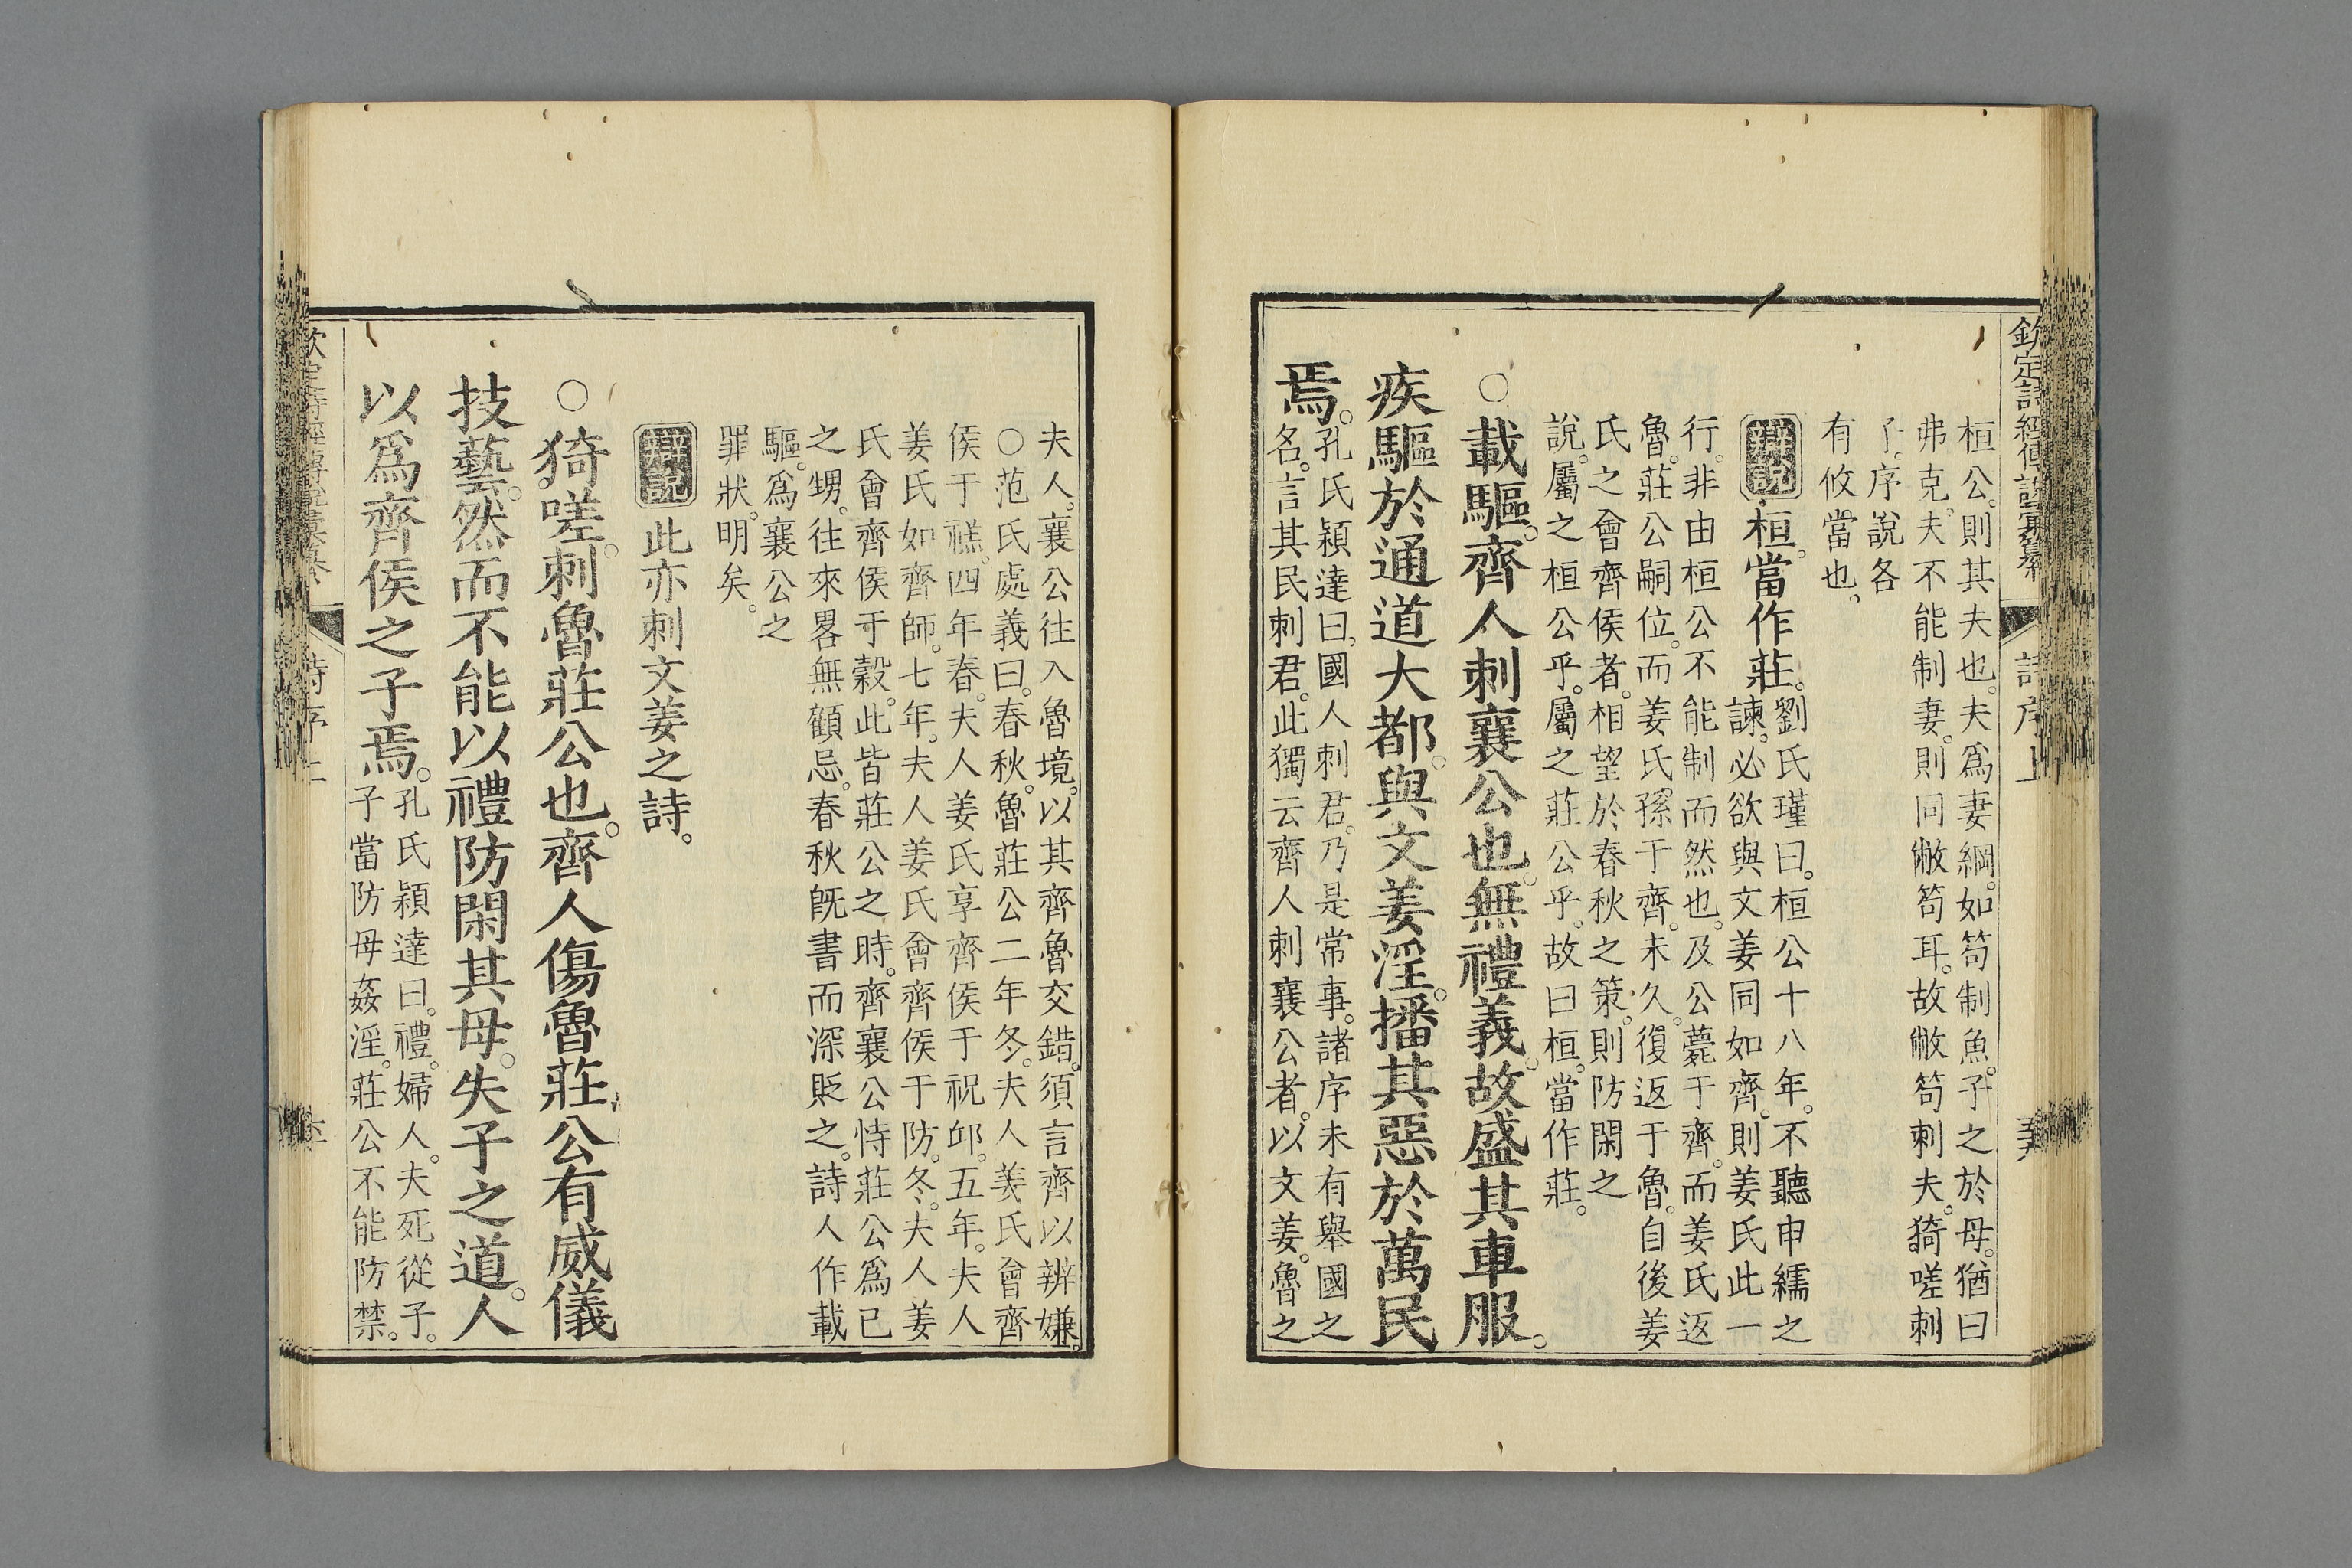 欽定詩經傳說彙纂
詩序上
桓公。則其夫也。夫爲妻綱。如笱制魚。子之於母。猶曰
弗克。夫不能制妻。則同敝笱耳。故敝笱刺夫。猗嗟刺
子。序說各
有攸當也。
辨說
桓當作莊。
劉氏瑾曰。桓公十八年。不聽申繻之
諫。必欲與文姜同如齊。則姜氏此一
行。非由桓公不能制而然也。及公薨于齊。而姜氏返
魯。莊公嗣位。而姜氏孫于齊。未久。復返于魯。自後姜
氏之會齊侯者。相望於春秋之策。則防閑之
說。屬之桓公乎。屬之莊公乎。故曰桓當作莊。
○載驅。齊人刺襄公也。無禮義。故盛其車服。
疾驅於通道大都。與文姜淫。播其惡於萬民
焉。
孔氏穎達曰。國人刺君。乃是常事。諸序未有舉國之
名。言其民刺君。此獨云齊人刺襄公者。以文姜。魯之
夫人。襄公往入魯境。以其齊魯交錯。須言齊以辨嫌。
○范氏處義曰。春秋。魯莊公二年冬。夫人姜氏會齊
侯于禚。四年春。夫人姜氏享齊侯于祝邱。五年。夫人
姜氏如齊師。七年。夫人姜氏會齊侯于防。冬。夫人姜
氏會齊侯于穀。此皆莊公之時。齊襄公恃莊公爲已
之甥。往來畧無顧忌。春秋旣書而深貶之。詩人作載
驅。爲襄公之
罪狀。明矣。
辨說
此亦刺文姜之詩。
○猗嗟。刺魯莊公也。齊人傷魯莊公有威儀
技藝。然而不能以禮防閑其母。失子之道。人
以爲齊侯之子焉。
孔氏穎達曰。禮。婦人。夫死從子。
子當防母姦淫。莊公不能防禁。